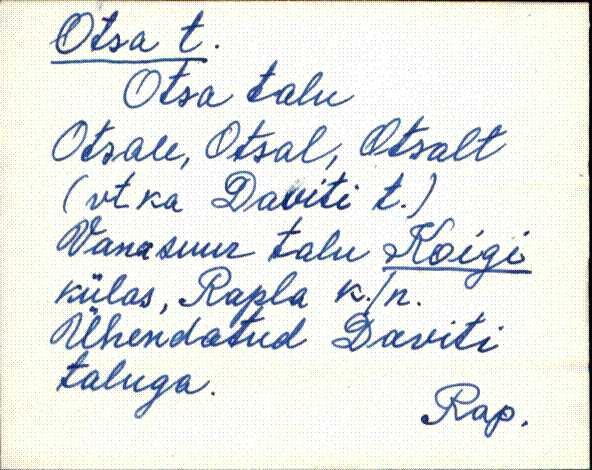 Otsa t.
Otsa talu
Otsale, Otsal, Otsalt
(vt ka Daviti t.)
Vana suur talu Koigi
külas, Rapla k./n.
Ühendatud Daviti
taluga.
Rap.